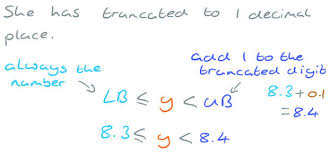 She has truncated to 1 decimal
place.
always the
number
add 1 to the
truncated digit
LB ≤ y < UB
8.3 + 0.1
= 8.4
8.3 ≤ y < 8.4